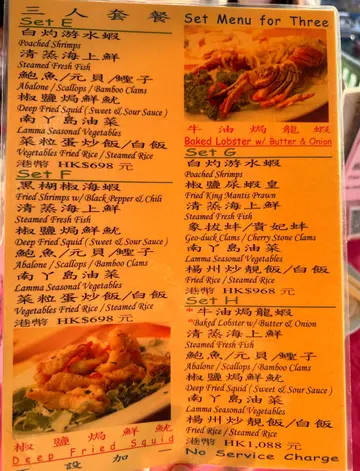 三人套餐 Set Menu for Three
Set E
白灼游水蝦
Poached Shrimps
清蒸海上鮮
Steamed Fresh Fish
鮑魚/元貝/蟶子
Abalone / Scallops / Bamboo Clams
椒鹽焗鮮魷
Deep Fried Squid ( Sweet & Sour Sauce )
南丫島油菜
Lamma Seasonal Vegetables
菜粒蛋炒飯/白飯
Vegetables Fried Rice / Steamed Rice
港幣 HK$698 元
Set F
黑椒椒海蝦
Fried Shrimps w/ Black Pepper & Chili
清蒸海上鮮
Steamed Fresh Fish
椒鹽焗鮮魷
Deep Fried Squid ( Sweet & Sour Sauce )
鮑魚/元貝/蟶子
Abalone / Scallops / Bamboo Clams
南丫島油菜
Lamma Seasonal Vegetables
菜粒蛋炒飯/白飯
Vegetables Fried Rice / Steamed Rice
港幣 HK$698 元
椒鹽焗鮮魷
Deep Fried Squid
設加一
牛油焗龍蝦
Baked Lobster w/ Butter & Onion
Set G
白灼游水蝦
Poached Shrimps
椒鹽尿蝦皇
Fried King Mantis Prawn
清蒸海上鮮
Steamed Fresh Fish
象拔蚌/貴妃蚌
Geo-duck Clams / Cherry Stone Clams
南丫島油菜
Lamma Seasonal Vegetables
楊州炒靚飯/白飯
Fried Rice / Steamed Rice
港幣 HK$968 元
Set H
*牛油焗龍蝦
*Baked Lobster w/ Butter & Onion
清蒸海上鮮
Steamed Fresh Fish
鮑魚/元貝/蟶子
Abalone / Scallops / Bamboo Clams
椒鹽焗鮮魷
Deep Fried Squid ( Sweet & Sour Sauce )
南丫島油菜
Lamma Seasonal Vegetables
楊州炒靚飯/白飯
Fried Rice / Steamed Rice
港幣 HK$1,088 元
No Service Charge